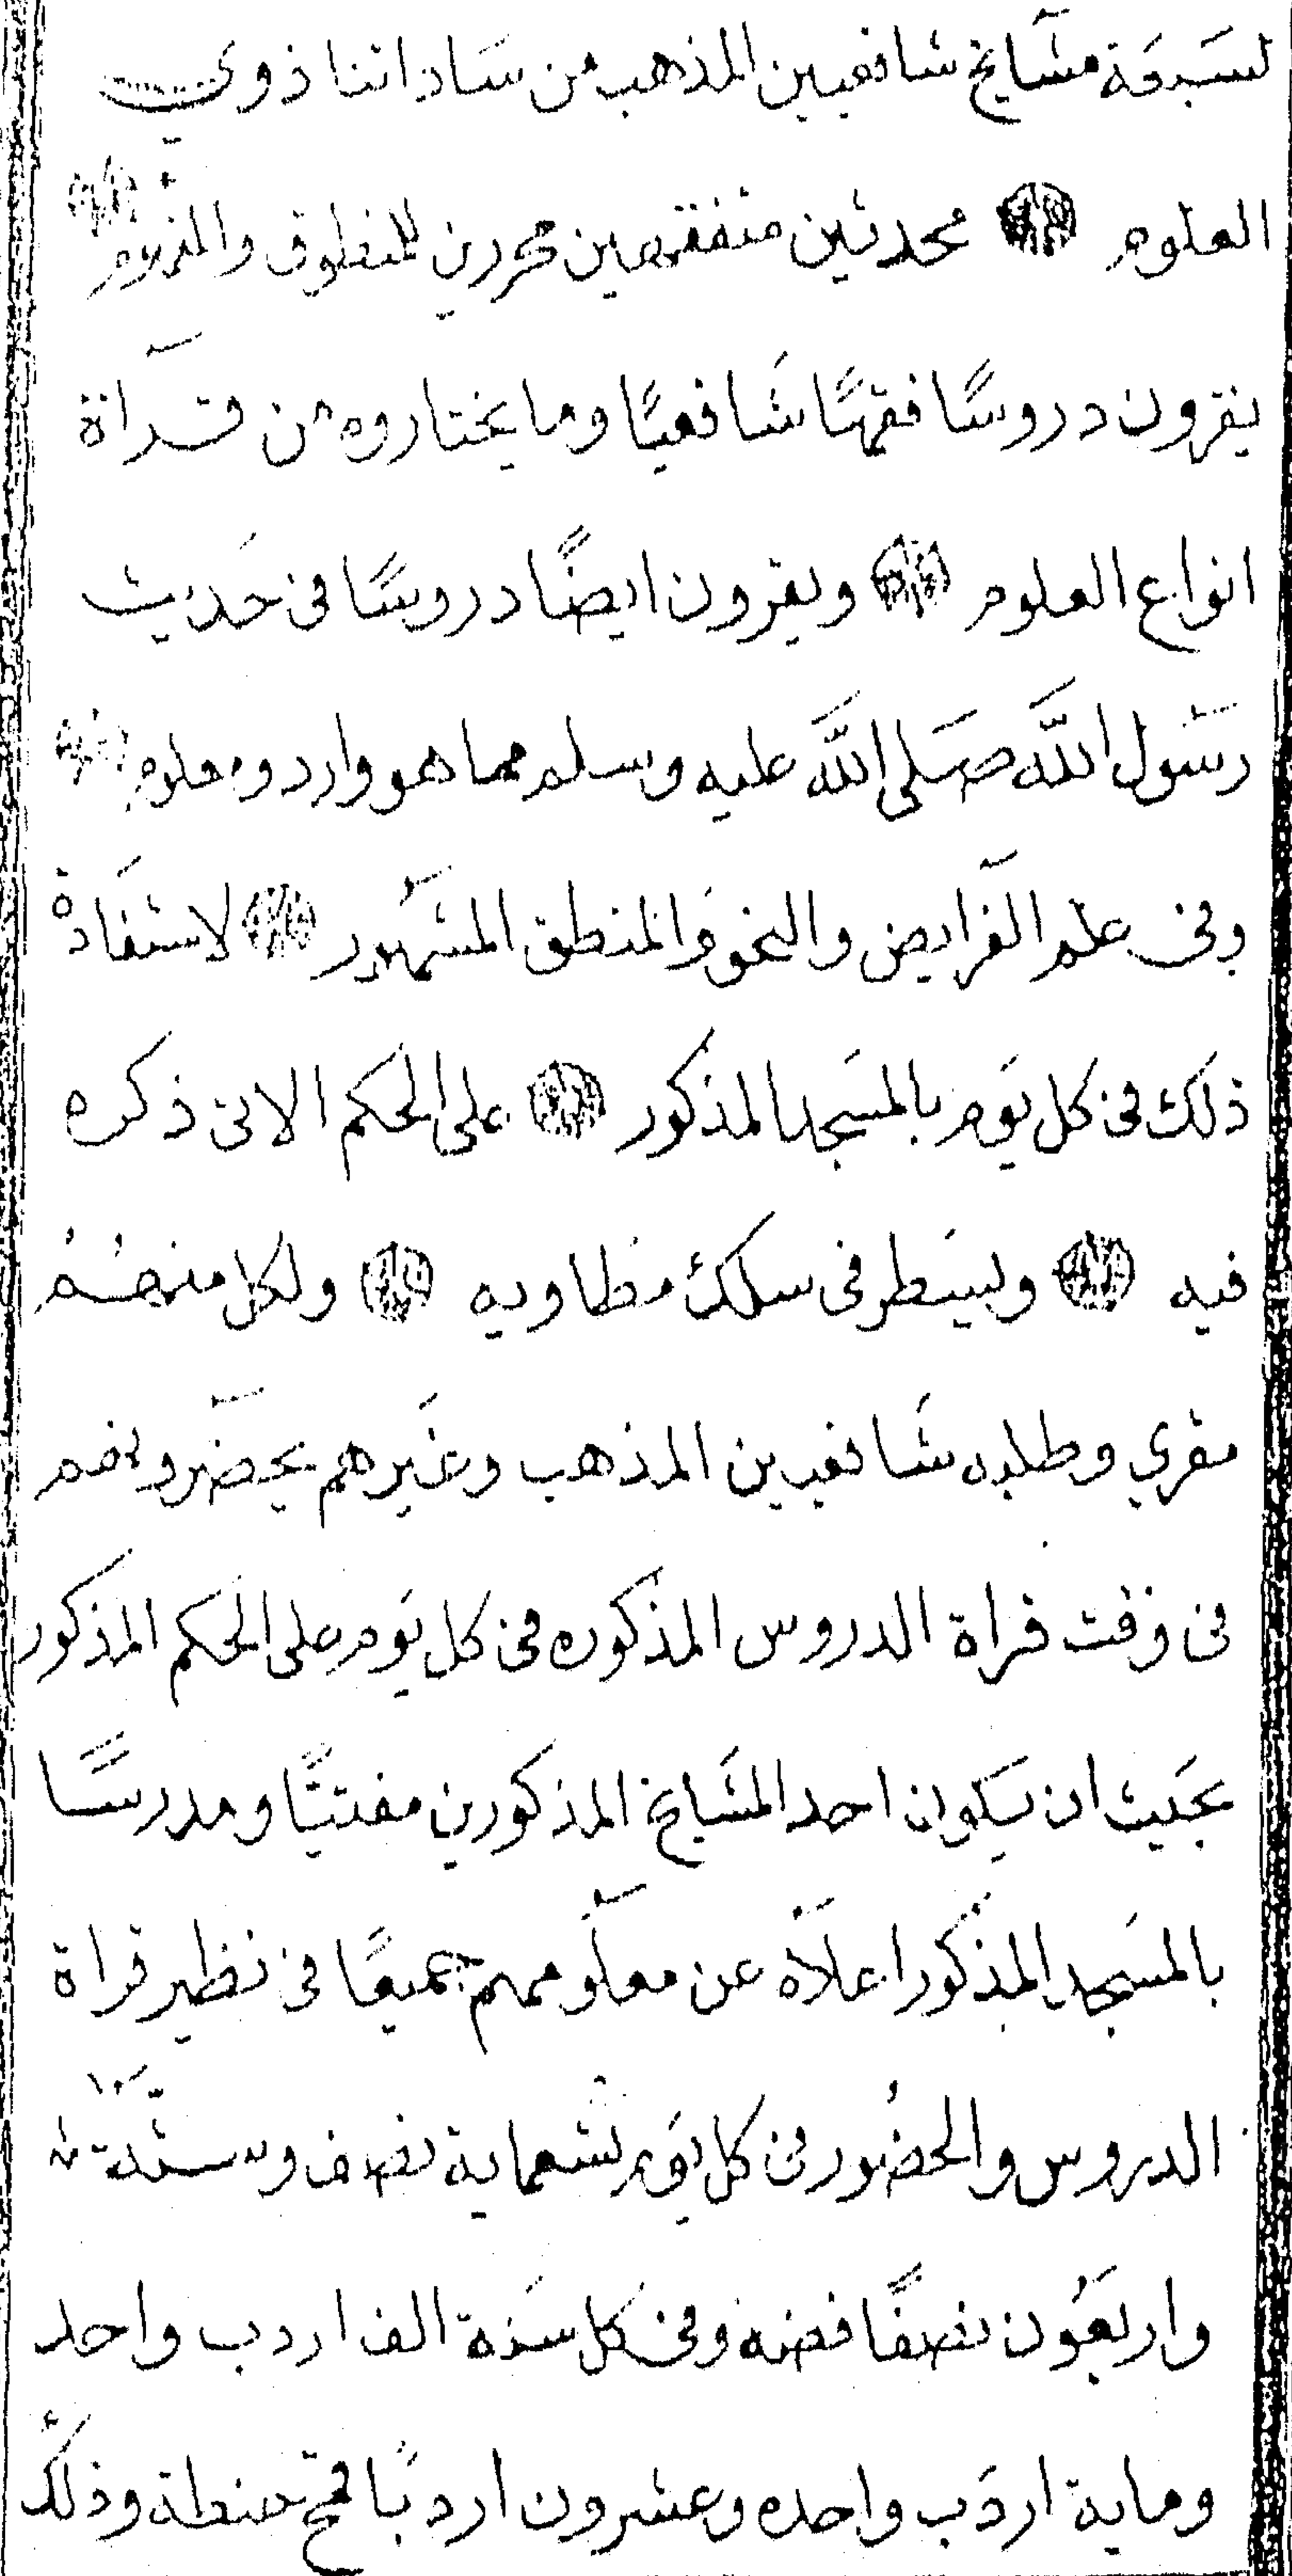 لسبعة مشايخ شافعيين المذهب من ساداتنا ذوي
العلوم محدثين متفقهين محررين للمنطوق والمفهوم
يقرون دروسًا فقهًا شافعيًا وما يختاروه من قرآة
انواع العلوم ويقرون ايضًا دروسًا في حديث
رسول الله صلى الله عليه وسلم مما هو وارد ومعلوم
وفي علم الفرايض والنحو والمنطق المشهور لاستفادة
ذلك في كل يوم بالمسجد المذكور على الحكم الاتي ذكره
فيه وليسطر في سلك مطاويه ولكل منهم
مقري وطلبه شافعيين المذهب وغيرهم يحضرونهم
في وقت قراة الدروس المذكوره في كل يوم على الحكم المذكور
بحيث ان يكون احد المشايخ المذكورين مفتيًا ومدرسًا
بالمسجد المذكور اعلاه عن معلومهم جميعًا في نظير قراة
الدروس والحضور في كل يوم تسعماية نصف وستة
واربعون نصفًا فضه وفي كل سنة الف اردب واحد
وماية اردب واحده وعشرون اردبًا قمح حنطة وذلك